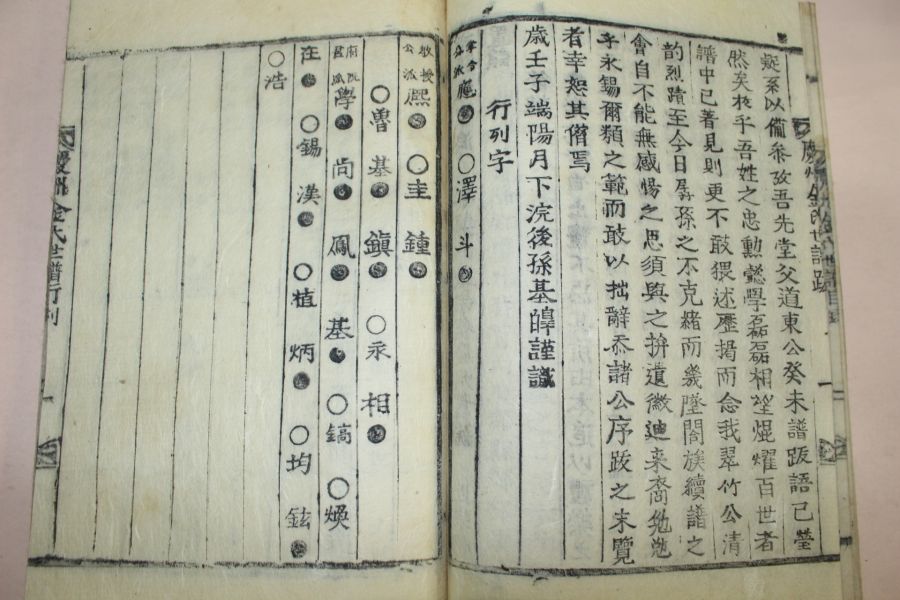 嶷系以備參攷吾先堂父道東公癸未譜跋語已瑩
然矣於乎吾姓之忠勳懿學磊磊相望焜耀百世者
譜中已著見則更不敢猥述歷揭而念我翠竹公清
韵烈蹟至今日孱孫之不克緒而幾墜閤族續譜之
會自不能無感惕之思須與之拚遺徽迪来裔
子永錫爾類之範而敢以拙辭忝諸公序跋之末覽
者幸恕其僭焉
歲壬子端陽月下浣後孫基皡謹識
行列字
掌令公派 ○澤 斗
教授公派 熙 ○圭 鍾
○魯 基 鎭 ○永 相
府院君派 學 尚 鳳 基 ○鎬 ○煥
在 ○錫 漢 ○植 炳 ○均 鉉
○浩
慶州金氏世譜行列
慶州金氏世譜跋